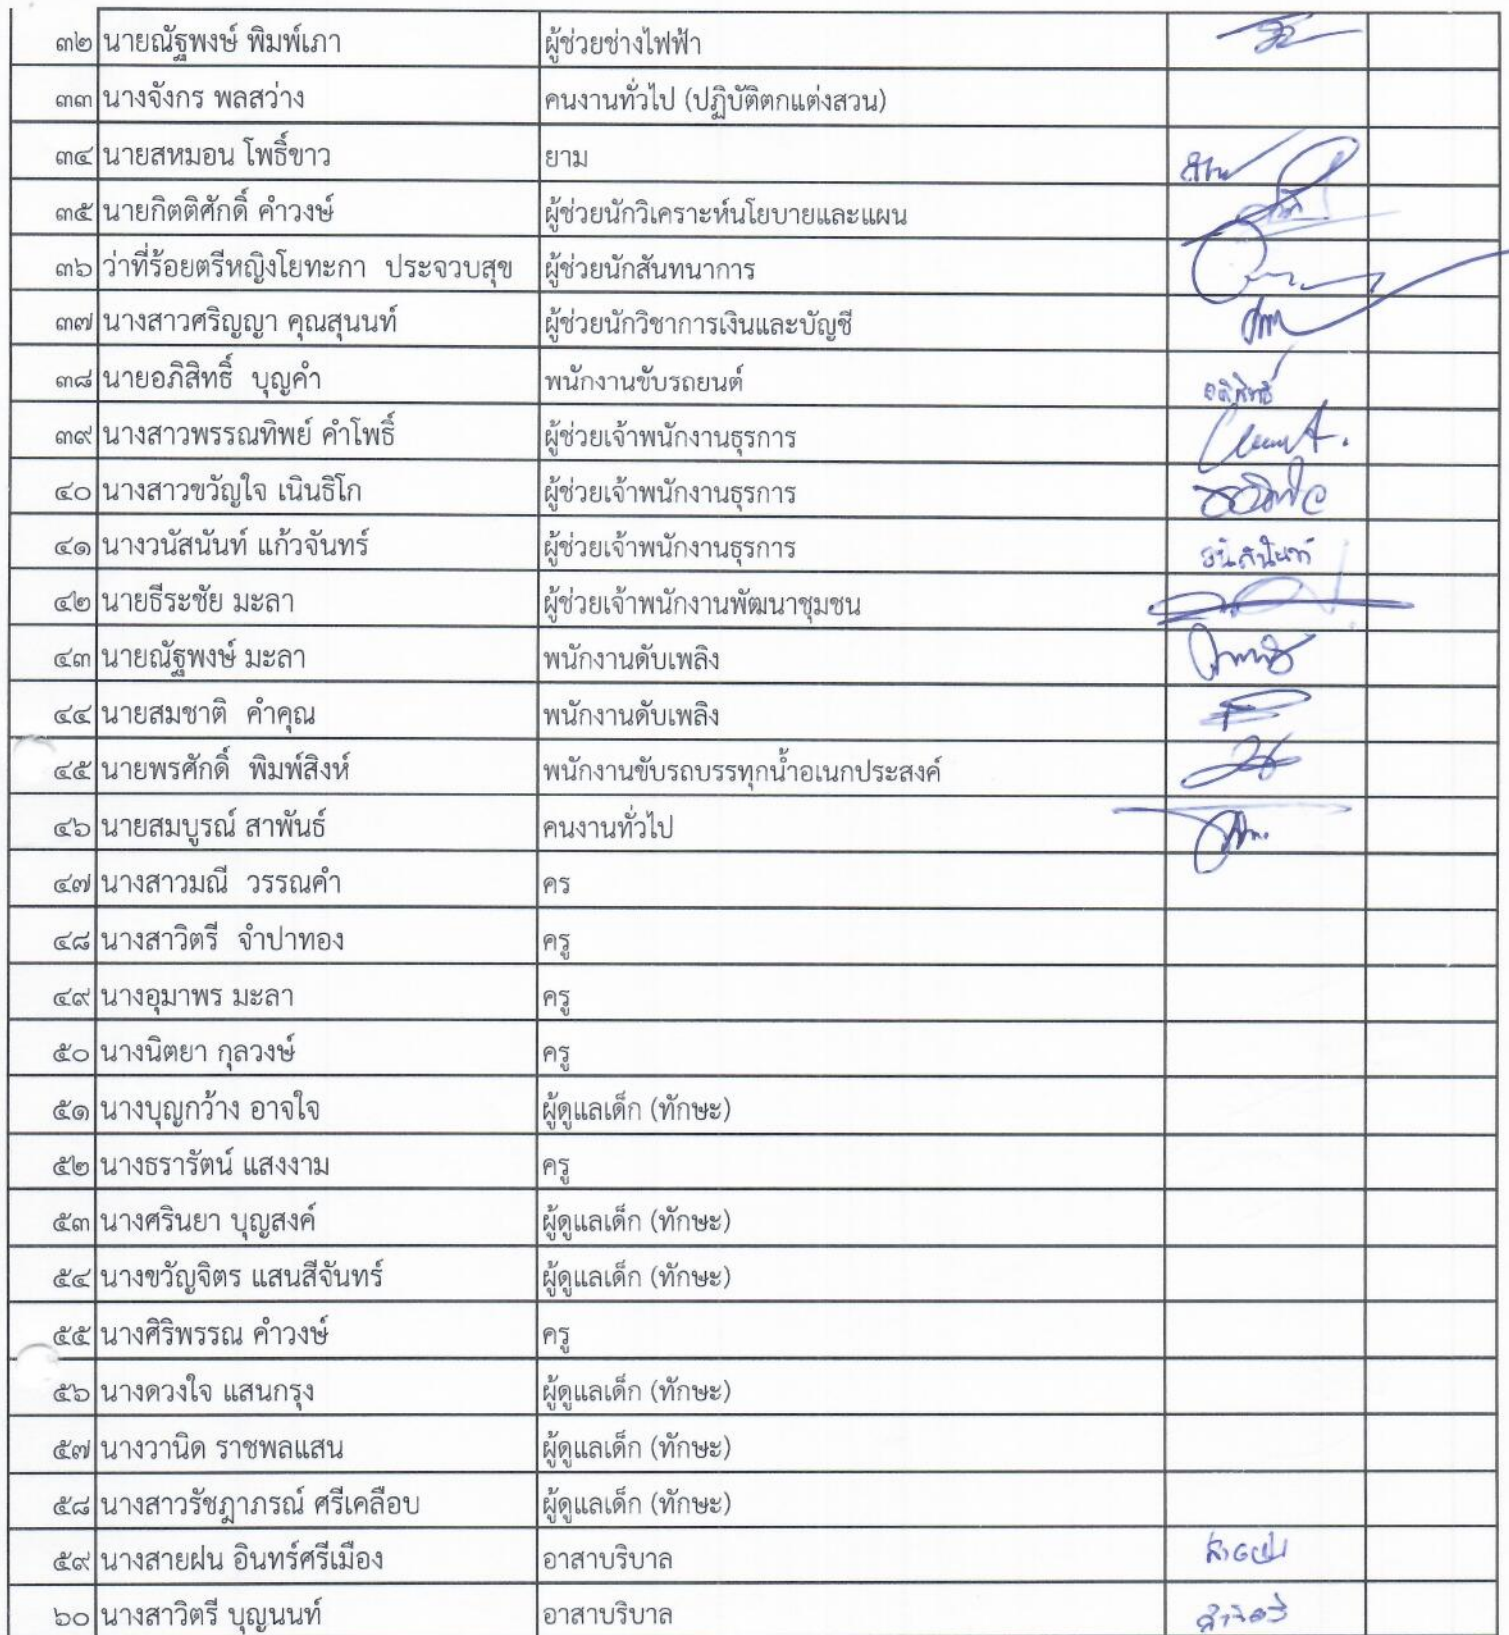 ๓๒ นายณัฐพงษ์ พิมพ์เภา ผู้ช่วยช่างไฟฟ้า
๓๓ นางจังกร พลสว่าง คนงานทั่วไป (ปฏิบัติตกแต่งสวน)
๓๔ นายสหมอน โพธิ์ขาว ยาม
๓๕ นายกิตติศักดิ์ คำวงษ์ ผู้ช่วยนักวิเคราะห์นโยบายและแผน
๓๖ ว่าที่ร้อยตรีหญิงโยทะกา ประจวบสุข ผู้ช่วยนักสันทนาการ
๓๗ นางสาวศริญญา คุณสุนนท์ ผู้ช่วยนักวิชาการเงินและบัญชี
๓๘ นายอภิสิทธิ์ บุญคำ พนักงานขับรถยนต์ อภิสิทธิ์
๓๙ นางสาวพรรณทิพย์ คำโพธิ์ ผู้ช่วยเจ้าพนักงานธุรการ
๔๐ นางสาวขวัญใจ เนินธิโก ผู้ช่วยเจ้าพนักงานธุรการ
๔๑ นางวนัสนันท์ แก้วจันทร์ ผู้ช่วยเจ้าพนักงานธุรการ วนัสนันท์
๔๒ นายธีระชัย มะลา ผู้ช่วยเจ้าพนักงานพัฒนาชุมชน
๔๓ นายณัฐพงษ์ มะลา พนักงานดับเพลิง
๔๔ นายสมชาติ คำคุณ พนักงานดับเพลิง
๔๕ นายพรศักดิ์ พิมพ์สิงห์ พนักงานขับรถบรรทุกน้ำอเนกประสงค์
๔๖ นายสมบูรณ์ สาพันธ์ คนงานทั่วไป
๔๗ นางสาวมณี วรรณคำ คร
๔๘ นางสาวิตรี จำปาทอง ครู
๔๙ นางอุมาพร มะลา ครู
๕๐ นางนิตยา กุลวงษ์ ครู
๕๑ นางบุญกว้าง อาจใจ ผู้ดูแลเด็ก (ทักษะ)
๕๒ นางธรารัตน์ แสงงาม ครู
๕๓ นางศรินยา บุญสงค์ ผู้ดูแลเด็ก (ทักษะ)
๕๔ นางขวัญจิตร แสนสีจันทร์ ผู้ดูแลเด็ก (ทักษะ)
๕๕ นางศิริพรรณ คำวงษ์ ครู
๕๖ นางดวงใจ แสนกรุง ผู้ดูแลเด็ก (ทักษะ)
๕๗ นางวานิด ราชพลแสน ผู้ดูแลเด็ก (ทักษะ)
๕๘ นางสาวรัชฎาภรณ์ ศรีเคลือบ ผู้ดูแลเด็ก (ทักษะ)
๕๙ นางสายฝน อินทร์ศรีเมือง อาสาบริบาล สายฝน
๖๐ นางสาวิตรี บุญนนท์ อาสาบริบาล สาวิตรี